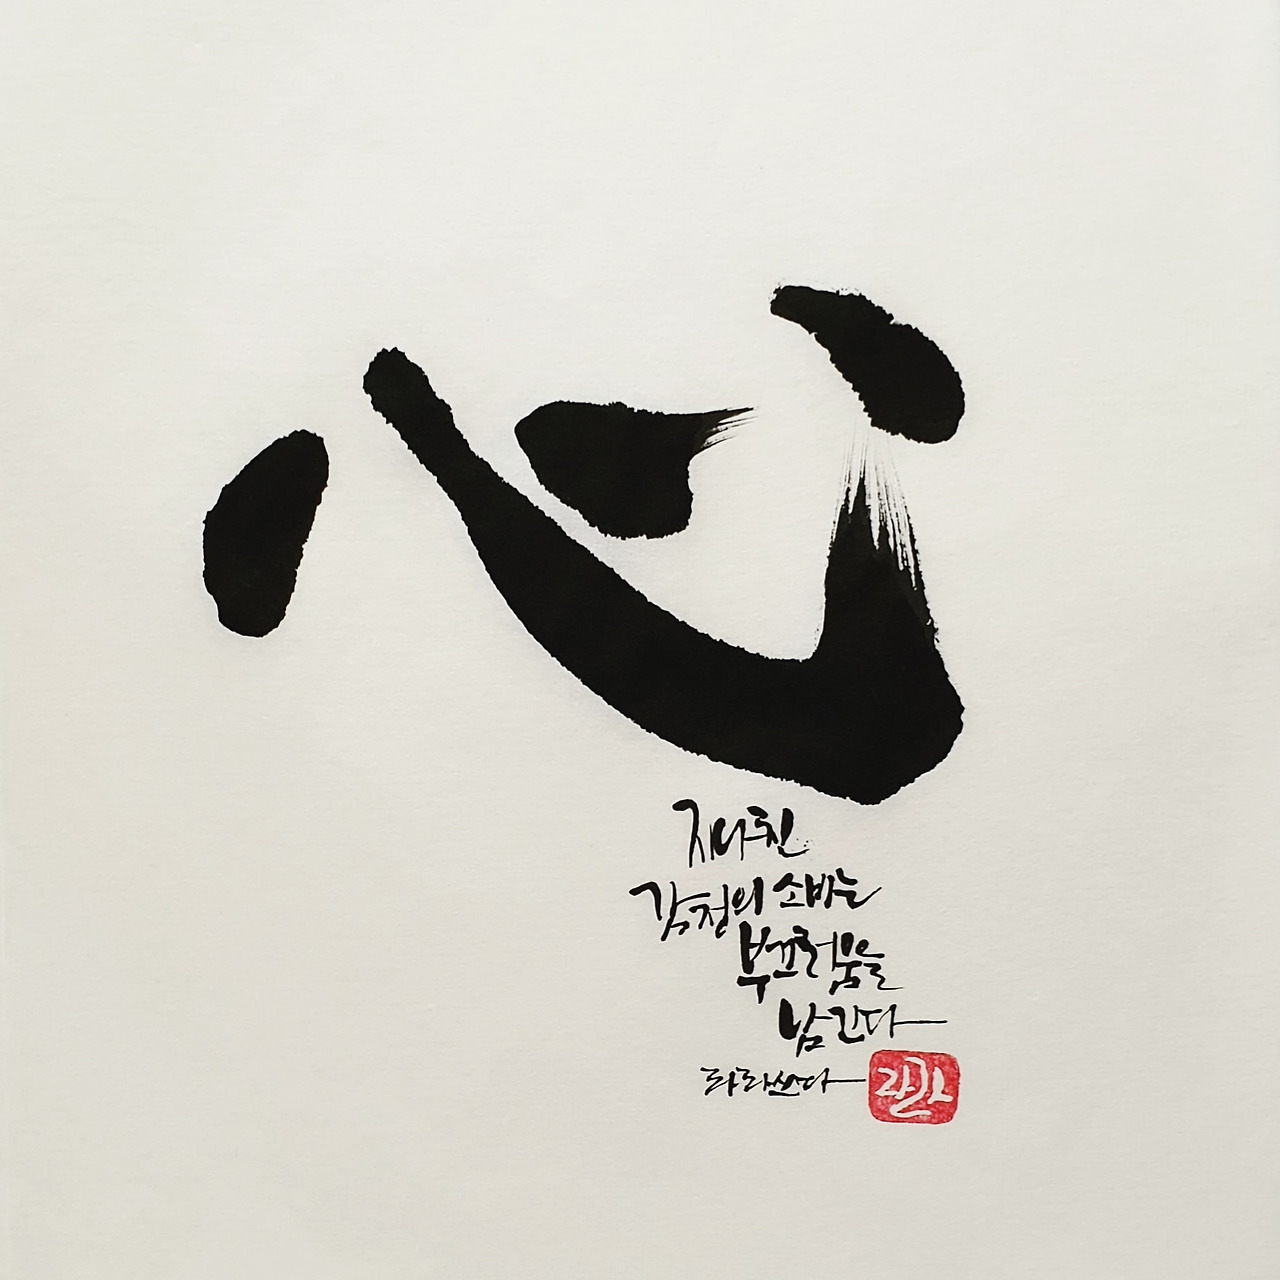 心
지나친
감정의 소비는
부끄러움을
남긴다
라라쓰다
라라